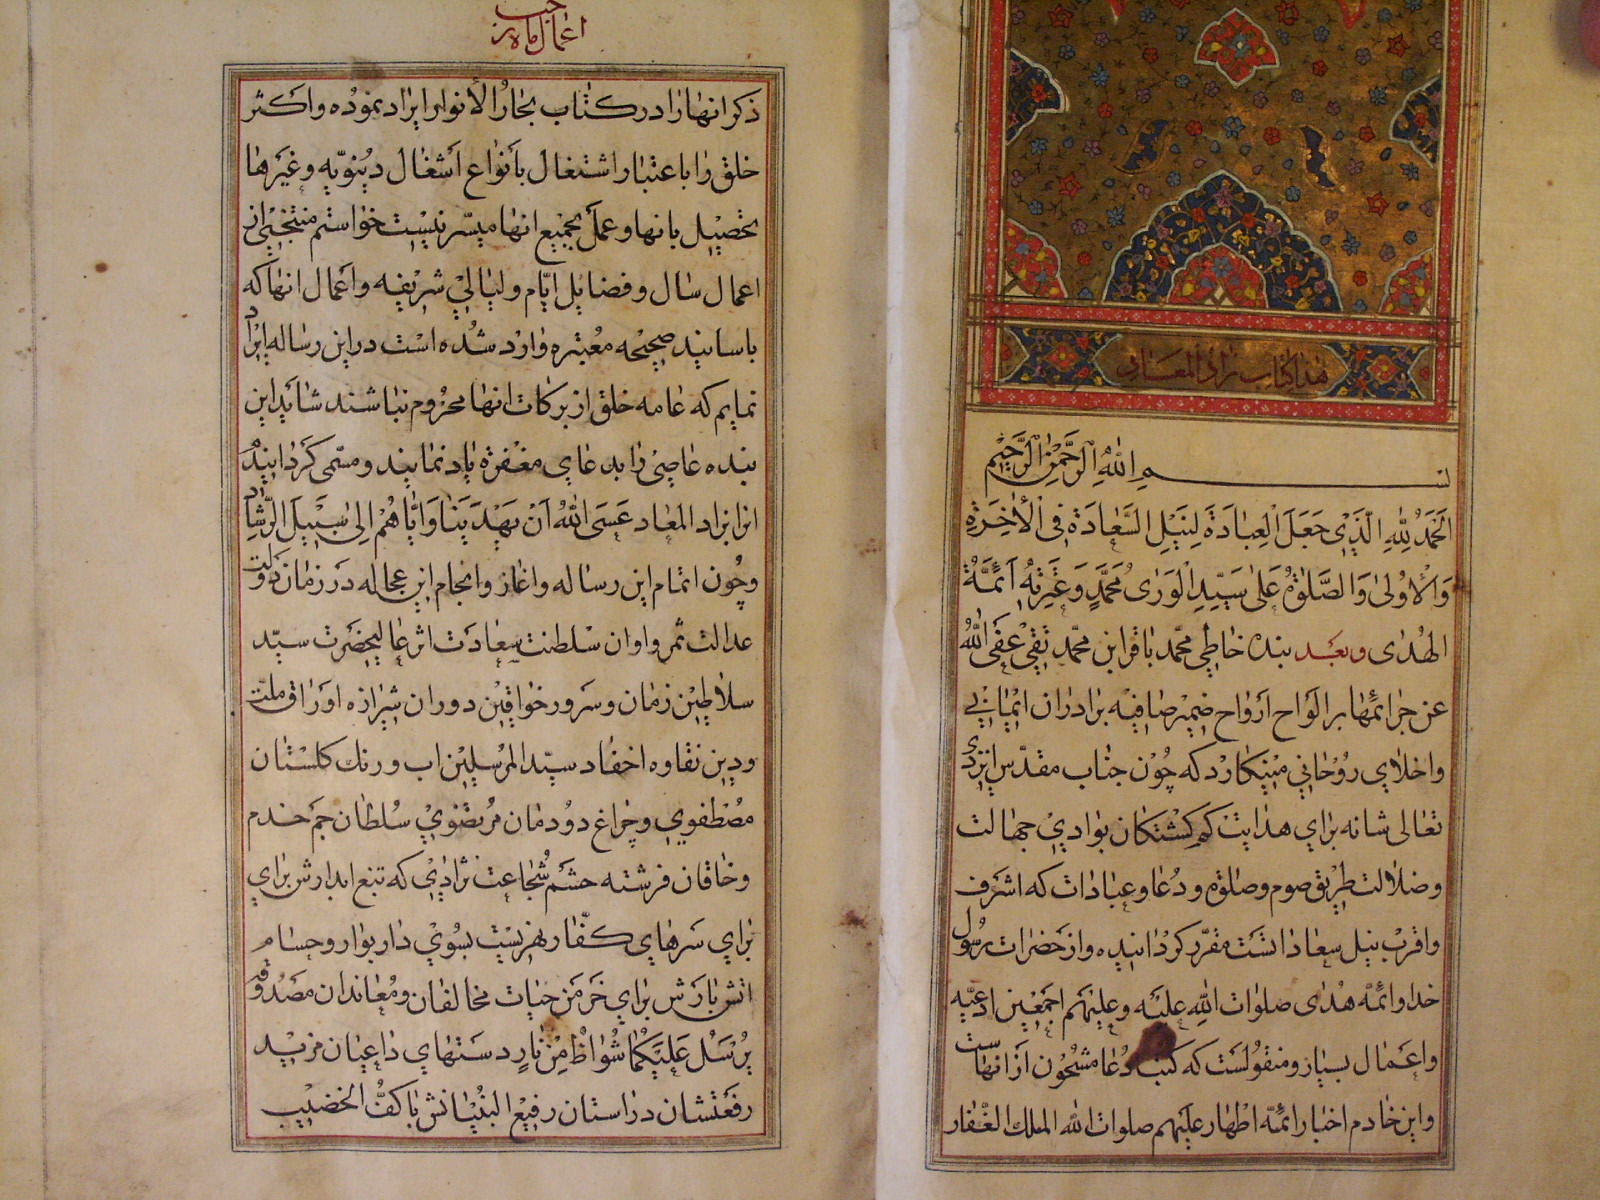 هذا كتاب زاد المعاد
بسم الله الرحمن الرحيم
الحمد لله الذي جعل العبادة لنيل السعادة في الآخرة
والاولى والصلوة على سيد الورى محمد وعترته ائمة
الهدى وبعد بنده خاطي محمد باقر ابن محمد تقي عفى الله
عن جرائمها بر الواح ارواح ضمير صافيه برادران ايماني
واخلاي روحاني مينكارد كه چون جناب مقدس ايزدي
تعالى شانه براي هدايت كم كشتكان بوادي جهالت
وضلالت طريق صوم وصلوة ودعا وعبادات كه اشرف
واقرب نيل سعاداتست مقرر كردانيده واز حضرات رسول
خدا وائمه هدى صلوات الله عليه وعليهم اجمعين ادعيه
واعمال بسيار ومنقولست كه كتب دعا مشحون از انهاست
واين خادم اخبار ائمه اطهار عليهم صلوات الله الملك الغفار
اعمال ماه رجب
ذكر انها را در كتاب بحار الأنوار ايراد نموده واكثر
خلق را باعتبار اشتغال بأنواع أشغال دينويه وغيرها
تحصيل بانها وعمل بجميع انها ميسر نيست خواستم منتخبي از
اعمال سال وفضايل ايام وليالي شريفه واعمال انها كه
باسانيد صحيحه معتبره وارد شده است در اين رساله ايراد
نمايم كه عامه خلق از بركات انها محروم نباشند شايد اين
بنده عاصي را بدعاي مغفرة ياد نمايند ومسمى كردانيد
انرا بزاد المعاد عسى الله ان يهدينا واياهم الى سبيل الرشاد
وچون اتمام اين رساله واغاز وانجام اين عجاله در زمان دولت
عدالت ثمر واوان سلطنت سعادت اثر عاليحضرت سيد
سلاطين زمان وسرور خواقين دوران شيرازه اوراق ملت
ودين نقاوه احفاد سيد المرسلين اب ورنك كلستان
مصطفوي وچراغ دودمان مرتضوي سلطان جم خدم
وخاقان فرشته حشم شجاعت نژادي كه تيغ ابدارش براي
براي سرهاي كفار بهزيست بسوي دار بوار وحسام
اتش بارش براي خرمن حيات مخالفان ومعاندان مصدوقه
يرسل عليكما شواظ من نار دستهاي داعيان مزيد
رفعتشان در استان رفيع البنيانش با كف الخضيب